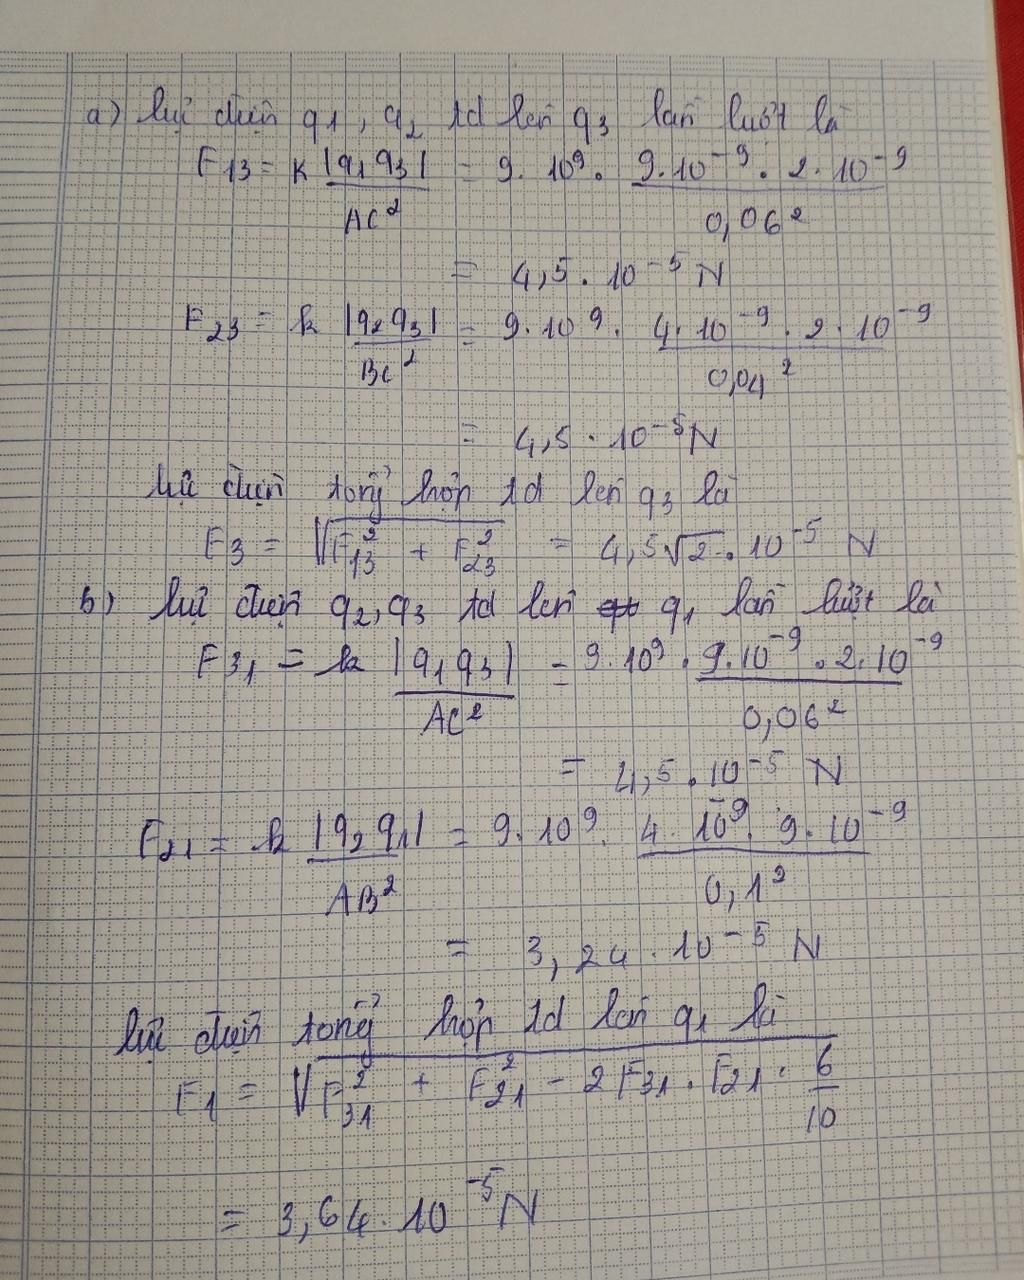 a) Lực điện q1, q2 td lên q3 lần lượt là
F13 = k |q1q3| / AC² = 9.10⁹. 9.10⁻⁹.2.10⁻⁹ / 0,06²
= 4,5.10⁻⁵ N
F23 = k |q2q3| / BC² = 9.10⁹. 4.10⁻⁹.2.10⁻⁹ / 0,04²
= 4,5.10⁻⁵ N
Lực điện tổng hợp td lên q3 là
F3 = √(F13² + F23²) = 4,5√2.10⁻⁵ N
b) Lực điện q2, q3 td lên q1 lần lượt là
F31 = k |q1q3| / AC² = 9.10⁹. 9.10⁻⁹.2.10⁻⁹ / 0,06²
= 4,5.10⁻⁵ N
F21 = k |q2q1| / AB² = 9.10⁹. 4.10⁻⁹.9.10⁻⁹ / 0,1²
= 3,24.10⁻⁵ N
Lực điện tổng hợp td lên q1 là
F1 = √(F31² + F21² - 2F31.F21. 6/10)
= 3,64.10⁻⁵ N